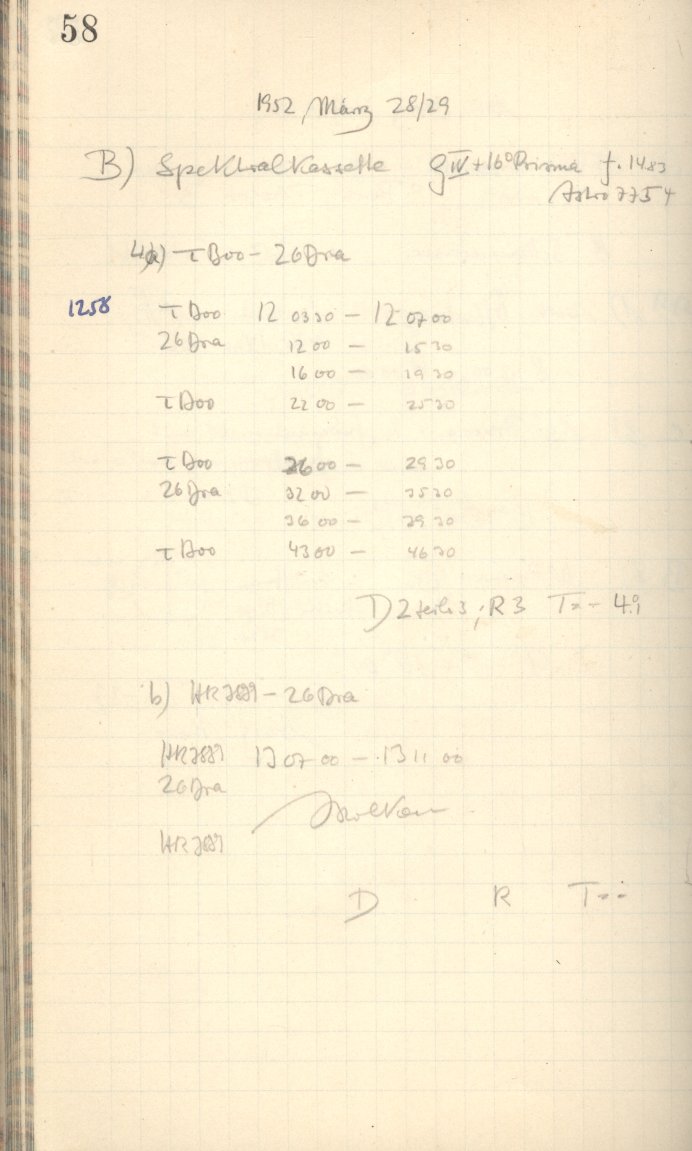 58
1952 März 28/29
B) Spektralkassette gIV + 16° Prisma f. 14.83
Astro 7754
4a) τ Boo - 26 Dra
1258 τ Boo 12 03 30 - 12 07 00
26 Dra 12 00 - 15 30
16 00 - 19 30
τ Boo 22 00 - 25 30
τ Boo 26 00 - 29 30
26 Dra 32 00 - 35 30
36 00 - 39 30
τ Boo 43 00 - 46 30
D 2 teils 3; R 3 T = - 4°,1
b) - 26 Dra
13 07 00 - 13 11 00
26 Dra
Wolken
D R T = -